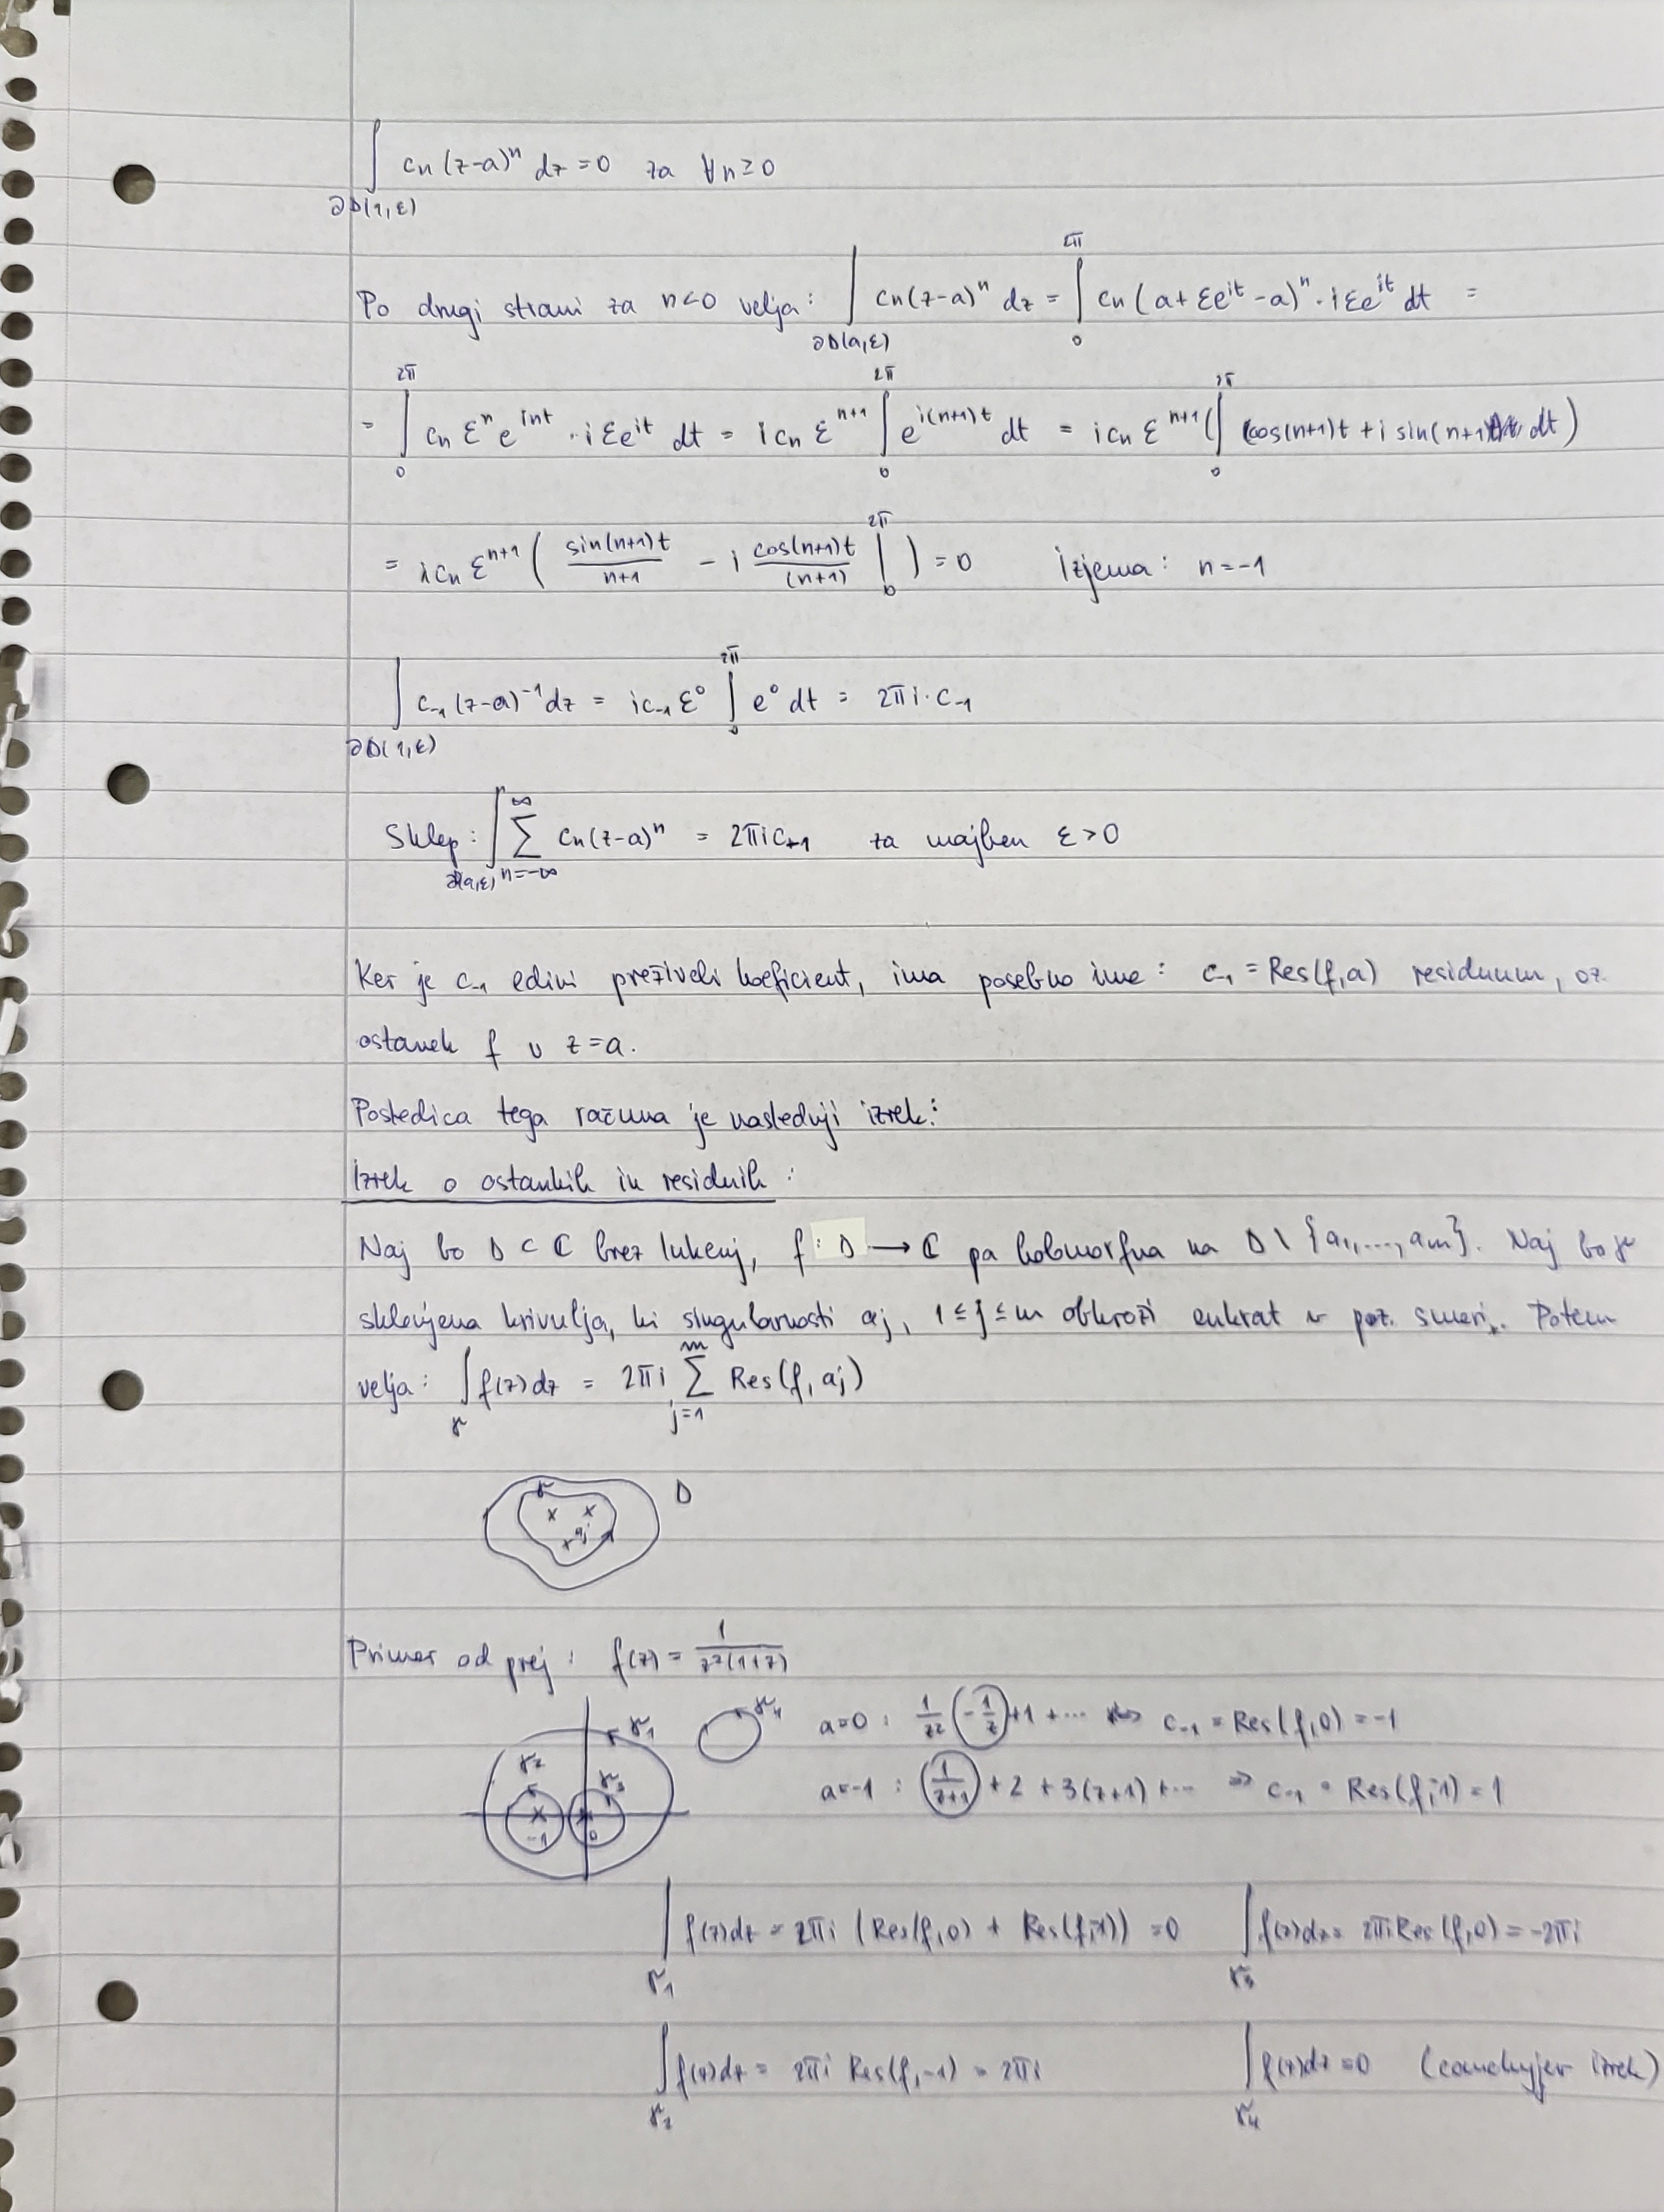 ∫_{∂D(1,ε)} cn (z-a)ⁿ dz = 0 za ∀n≥0
Po drugi strani za n<0 velja: ∫_{∂D(a,ε)} cn(z-a)ⁿ dz = ∫_0^{2π} cn (a+εe^{it}-a)ⁿ · iεe^{it} dt =
= ∫_0^{2π} cn εⁿ e^{int} · iεe^{it} dt = i cn ε^{n+1} ∫_0^{2π} e^{i(n+1)t} dt = i cn ε^{n+1} (∫_0^{2π} cos(n+1)t + i sin(n+1)t dt)
= i cn ε^{n+1} ( sin(n+1)t / n+1 - i cos(n+1)t / (n+1) |_0^{2π} ) = 0 Izjema: n=-1
∫_{∂D(1,ε)} c₋₁ (z-a)⁻¹ dz = i c₋₁ ε⁰ ∫_0^{2π} e⁰ dt = 2πi · c₋₁
Sklep: ∫_{∂D(a,ε)} ∑_{n=-∞}^{∞} cn(z-a)ⁿ = 2πi c₋₁ za majhen ε>0
Ker je c₋₁ edini preživeli koeficient, ima posebno ime: c₋₁ = Res(f,a) residuum, oz.
ostanek f v z=a.
Posledica tega računa je naslednji izrek:
Izrek o ostankih in residuih:
Naj bo D ⊂ ℂ brez lukenj, f: D → ℂ pa holomorfna na D \ {a₁,...,am}. Naj bo γ
sklenjena krivulja, ki singularnosti aj, 1≤j≤m obkroži enkrat v poz. smeri. Potem
velja: ∫_γ f(z)dz = 2πi ∑_{j=1}^{m} Res(f, aj)
γ D
aj
Primer od prej: f(z) = 1 / z²(1+z)
γ₁ γ₄ a=0: 1/z² - 1/z + 1 + ... ⇒ c₋₁ = Res(f,0) = -1
γ₂ γ₃ a=-1: 1/(z+1) + 2 + 3(z+1) + ... ⇒ c₋₁ = Res(f,-1) = 1
-1 0
∫_{γ₁} f(z)dz = 2πi (Res(f,0) + Res(f,-1)) = 0 ∫_{γ₃} f(z)dz = 2πi Res(f,0) = -2πi
∫_{γ₂} f(z)dz = 2πi Res(f,-1) = 2πi ∫_{γ₄} f(z)dz = 0 (cauchyjev izrek)